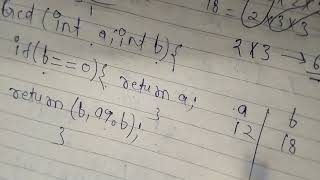 Gcd (int a, int b) {
if (b == 0) { return a;
}
return (b, a%b);
}
18 = 2×3×3
2×3 → 6
a | b
12 | 18